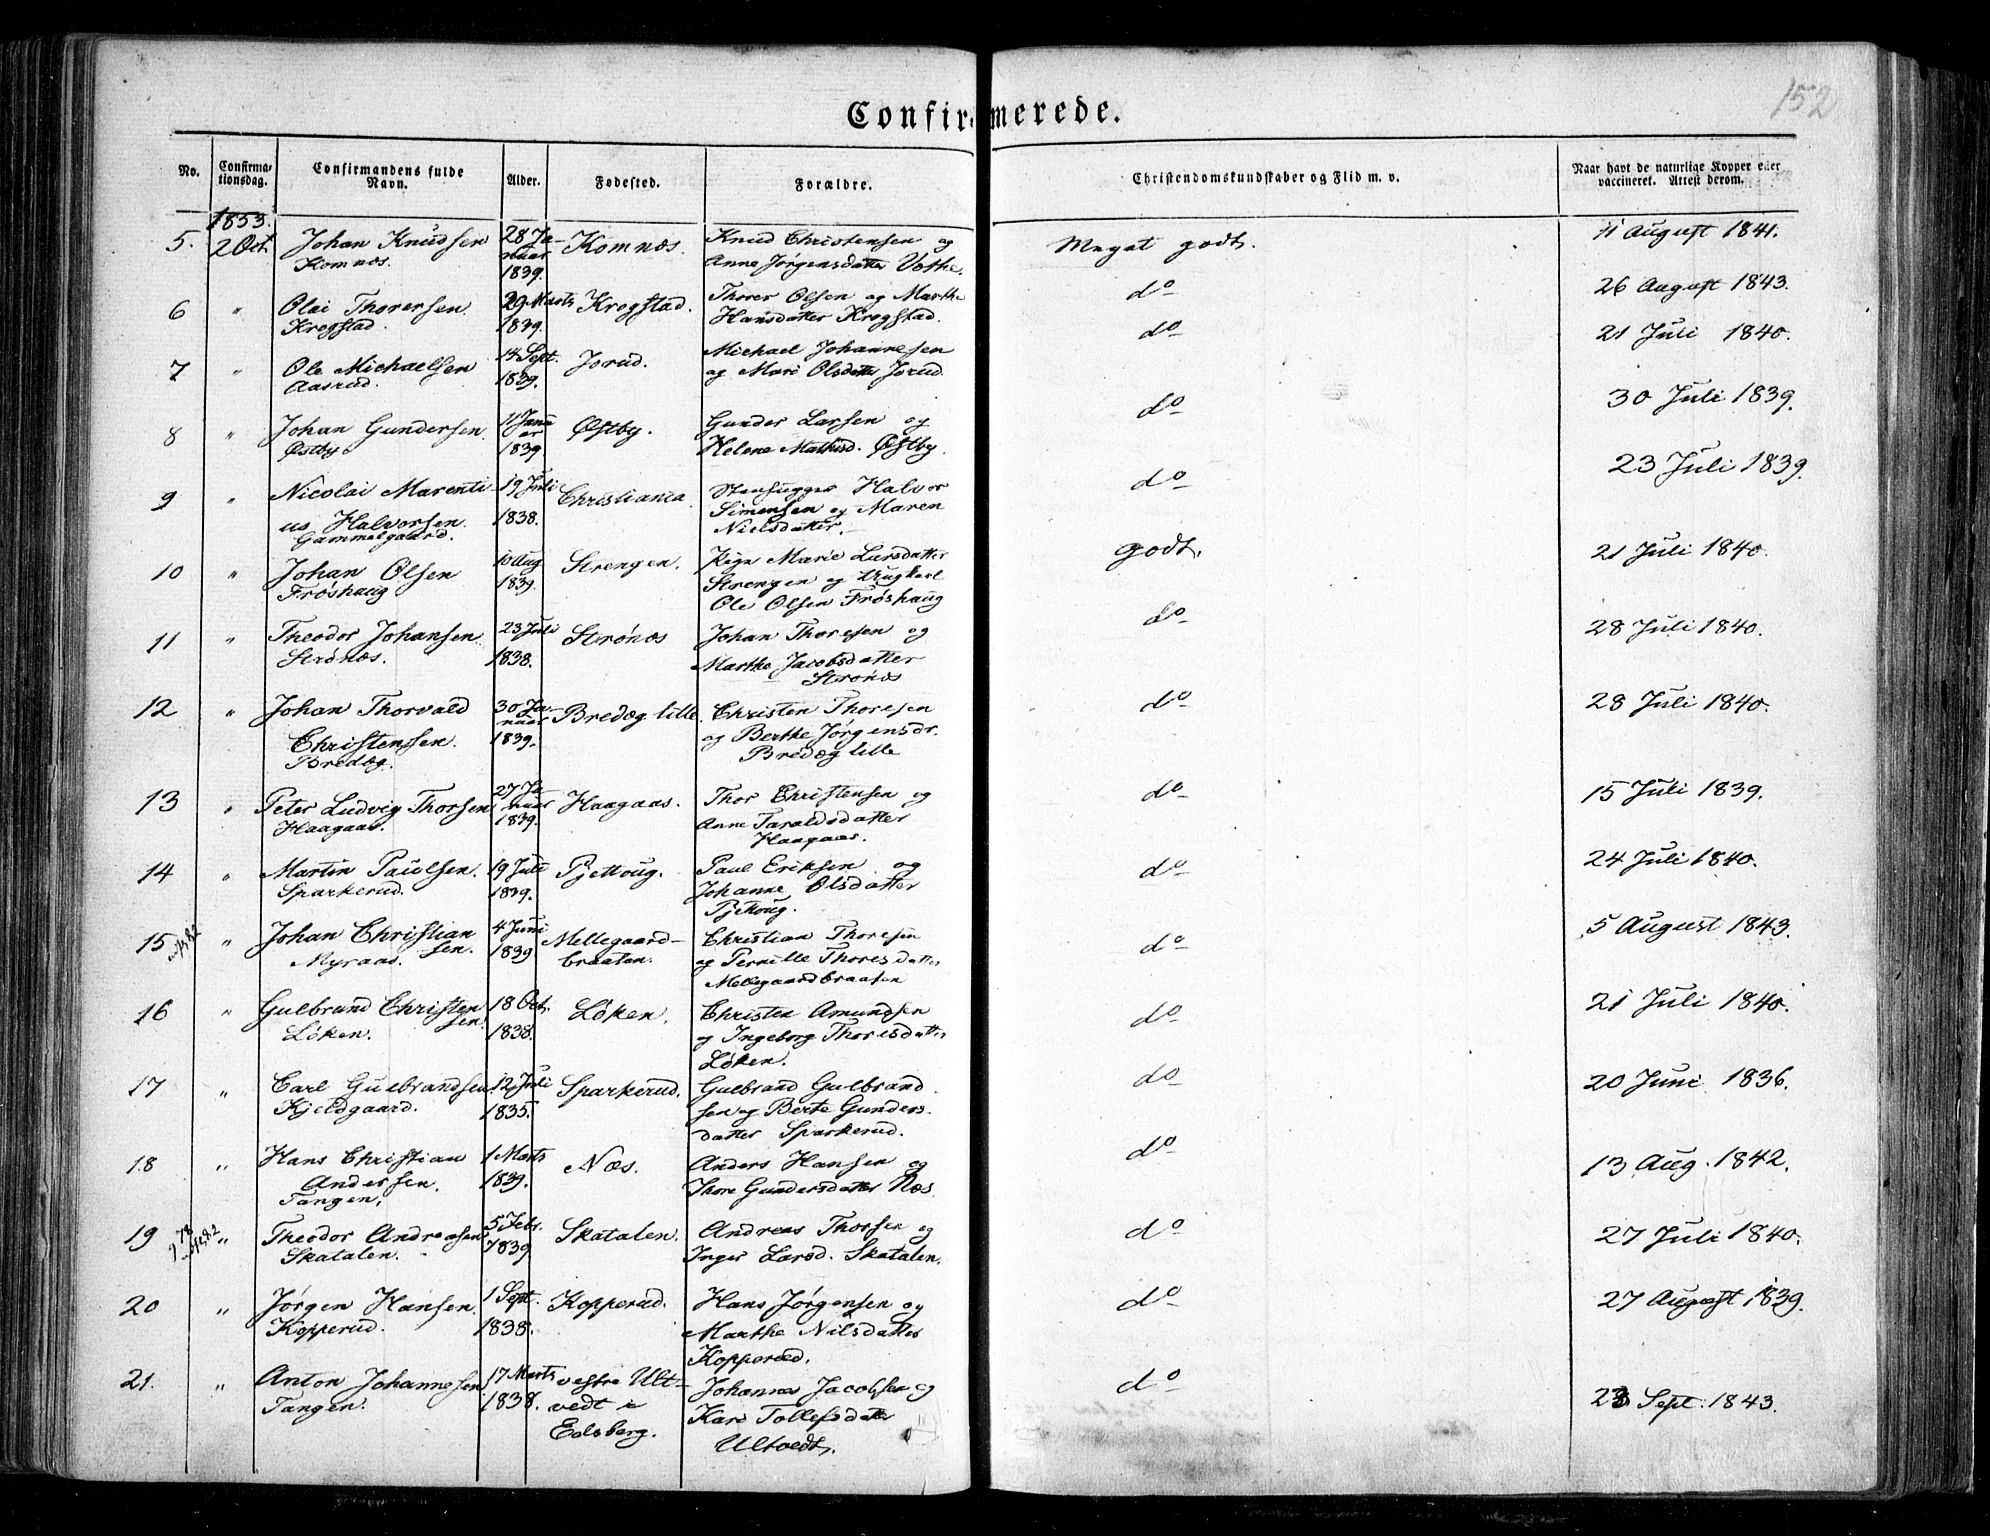 152
Confirmerede.
No.
Confirma-
tionsdag.
Confirmandens fulde
Navn.
Alder.
Fødested.
Forældre.
Christendomskundskaber og Flid m. v.
Naar havt de naturlige Kopper eller
vaccineret. Attest derom.
1853.
5. 2 Oct. Johan Knudsen 28 Ja- Komnæs. Knud Christensen og Meget godt. 11 August 1841.
Komnæs. nuar Anne Jørgensdatter
1839.
6 " Olai Thorersen 29 Marts Krogstad. Thorer Olsen og Marthe do 26 August 1843.
Krogstad. 1839. Hansdatter Krogstad.
7 " Ole Michaelsen 14 Sept. Jorud. Michael Johannesen do 21 Juli 1840.
Aasrud. 1839. og Mari Olsdatter Jorud
8 " Johan Gundersen 11 Janu Østby. Gunder Larsen og do 30 Juli 1839.
Østby. ar Helene Mathisd. Østby.
1839
9 " Nicolai Marenti 19 Juli Christiania Stenhugger Halvor do 23 Juli 1839.
us Halvorsen 1838. Simensen og Maren
Gammelgaard. Nielsdatter.
10 " Johan Olsen 10 Aug Strengen. Pige Marie Larsdatter godt. 21 Juli 1840.
Frøshaug 1839. Strengen og Ungkarl
Ole Olsen Frøshaug
11 " Theodor Johansen 23 Juli Strønæs Johan Thoresen og do 28 Juli 1840.
Strønæs. 1838. Marthe Jacobsdatter
Strønæs
12 " Johan Thorvald 30 Ja- Bredæg lille. Christen Thoresen do 28 Juli 1840.
Christensen. nuar og Berthe Jørgensdr.
Bredæg. 1839. Bredæg lille
13 " Peter Ludvig Thorsen 27 Ja Haagaas. Thor Christensen og do 15 Juli 1839.
Haagaas. nuar Anne Taraldsdatter
1839. Haagaas.
14 " Martin Paulsen. 19 Juli Pjettoug. Paul Eriksen og do 24 Juli 1840.
Sparkerud. 1839. Johanne Olsdatter
Pjettoug.
15 " Johan Christian 4 Juni Mellegaard- Christian Thoresen do 5 August 1843.
sen. 1839 braaten. og Pernille Thoresdatter
Myraas. Mellegaardbraaten
16 " Gulbrand Christen 18 Oct. Løken. Christen Amundsen do 21 Juli 1840.
sen. 1838. og Ingeborg Thoresdatter
Løken. Løken.
17 " Carl Gulbrandsen 12 Juli Sparkerud. Gulbrand Gulbrand do 20 Juni 1836.
Kjeldgaard. 1835. sen og Berte Gunders.
datter Sparkerud.
18 " Hans Christian 1 Marts Næs. Anders Hansen og do 13 Aug. 1842.
Andersen. 1839. Thore Gundersdatter Næs
Tangen.
19 " Theodor Andreasen 5 Febr. Skatalen. Andreas Thorsen og do 27 Juli 1840.
Skatalen. 1839. Inger Larsd. Skatalen.
20 " Jørgen Hansen 1 Sept. Kopperud. Hans Jørgensen og do 27 August 1839.
Kopperud. 1838. Marthe Nilsdatter
Kopperud.
21. " Anton Johannesen 17 Marts vestre Ult- Johannes Jacobsen og do Sept. 1843.
Tangen. 1838. vedt i Kari Tollefsdatter
Edsberg. Ultvedt.